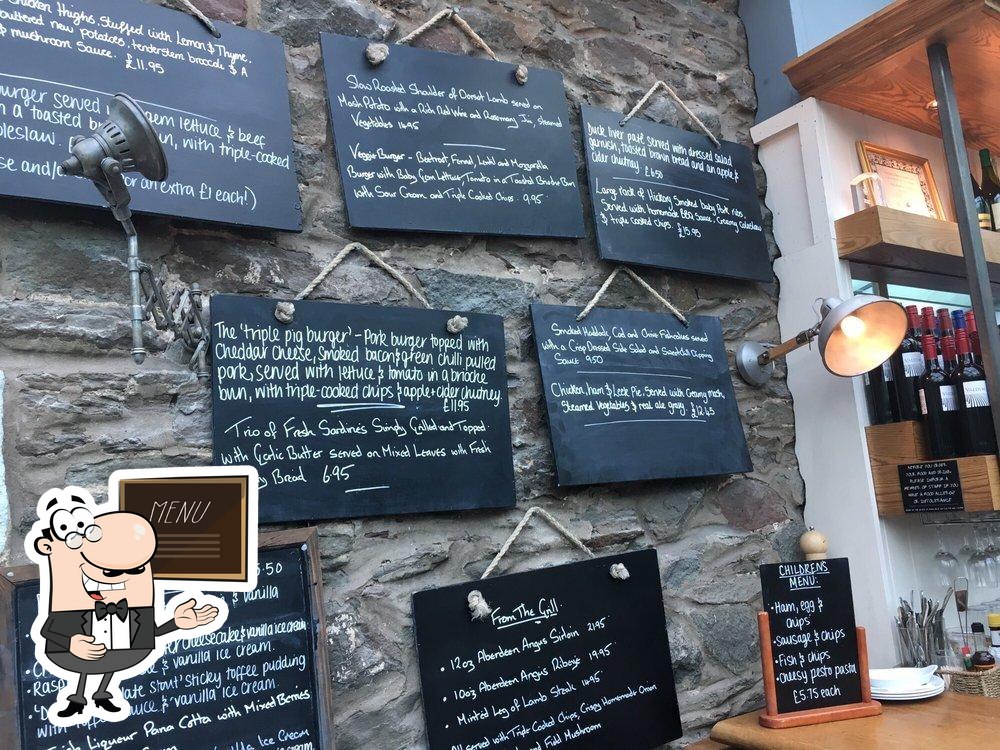 Chicken Thighs Stuffed with Lemon & Thyme,
buttered new potatoes, tenderstem broccoli & A
mushroom Sauce. £11.95
burger served
gem lettuce & beef
in a toasted
bun, with triple-cooked
coleslaw.
and/
or an extra £1 each!)
Slow Roasted Shoulder of Dorset Lamb served on
Mash Potato with a Rich Red Wine and Rosemary Jus, steamed
Vegetables 14.95
Veggie Burger - Beetroot, Fennel, Lentil and Mozzarella
Burger with Baby Gem Lettuce, Tomato in a Toasted Brioche Bun
with Sour Cream, and Triple Cooked Chips. 9.95
Duck liver paté served with dressed salad
garnish, toasted brown bread and an apple &
cider chutney. £6.50
Large rack of Hickory Smoked Baby Pork ribs,
Served with homemade BBQ Sauce, Creamy Coleslaw
& triple cooked chips. £15.95
The 'triple pig burger' - Pork burger topped with
Cheddar Cheese, Smoked bacon & green chilli pulled
pork, served with lettuce & tomato in a brioche
bun, with triple-cooked chips & apple + cider chutney.
£11.95
Trio of Fresh Sardines Simply Grilled and Topped
with Garlic Butter served on Mixed Leaves with Fresh
Bread 6.95
Smoked Haddock, Cod and Onion Fishcakes served
with a Crisp Dressed Side Salad and Sweet Chilli Dipping
Sauce 9.50
Chicken, ham & Leek Pie, Served with Creamy mash,
Steamed Vegetables & real ale gravy. £12.45
MENU
5.50
& vanilla
cheesecake & vanilla ice cream
& vanilla ice cream.
stout' sticky toffee pudding
with Toffee Sauce & vanilla Ice Cream.
Liqueur Pana Cotta with Mixed Berries
Ice Cream
From The Grill.
• 12oz Aberdeen Angus Sirloin 21.95
• 10oz Aberdeen Angus Ribeye 19.95
• Minted Leg of Lamb Steak 14.95
All served with Triple Cooked Chips, Crispy Homemade Onion
and Field Mushroom
CHILDRENS
MENU:
• Ham, egg &
chips
• Sausage & chips
• Fish & chips
• Cheesy pesto pasta
£5.75 each
BEFORE YOU ORDER
YOUR FOOD AND DRINKS
PLEASE INFORM A
MEMBER OF STAFF IF YOU
HAVE A FOOD ALLERGY
OR INTOLERANCE